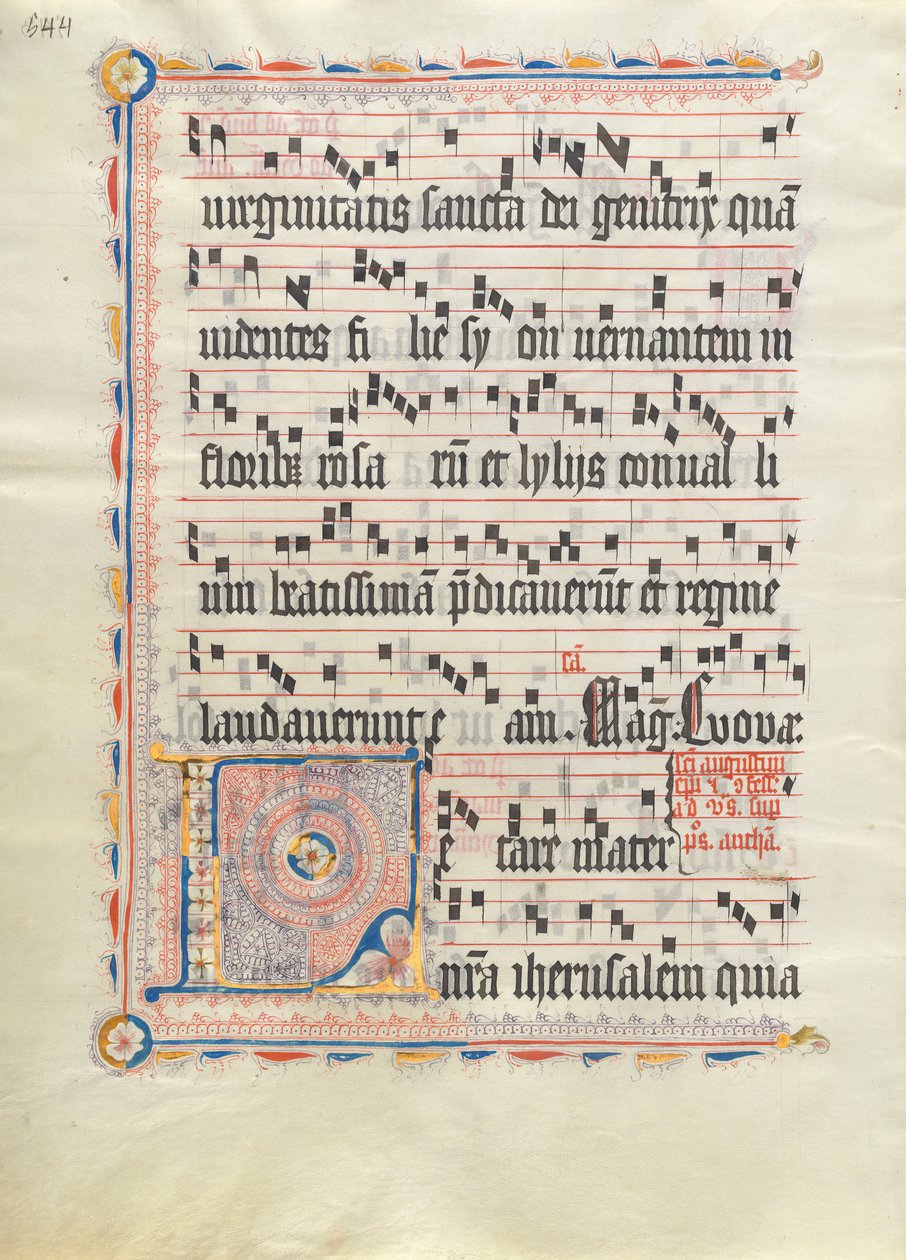 544
uirginitatis sancta dei genitrix quā
uidentes fi lie sy on uernantem in
floribꝫ rosa rū et lylijs conual li
um beatissimā p̄dicauerūt et regine
laudauerunt e am. Mag̃. Euouae
cā.
sc̄i augustini
ad v̄s. sup
p̄s. anthā.
Le tare mater
nr̄a iherusalem quia